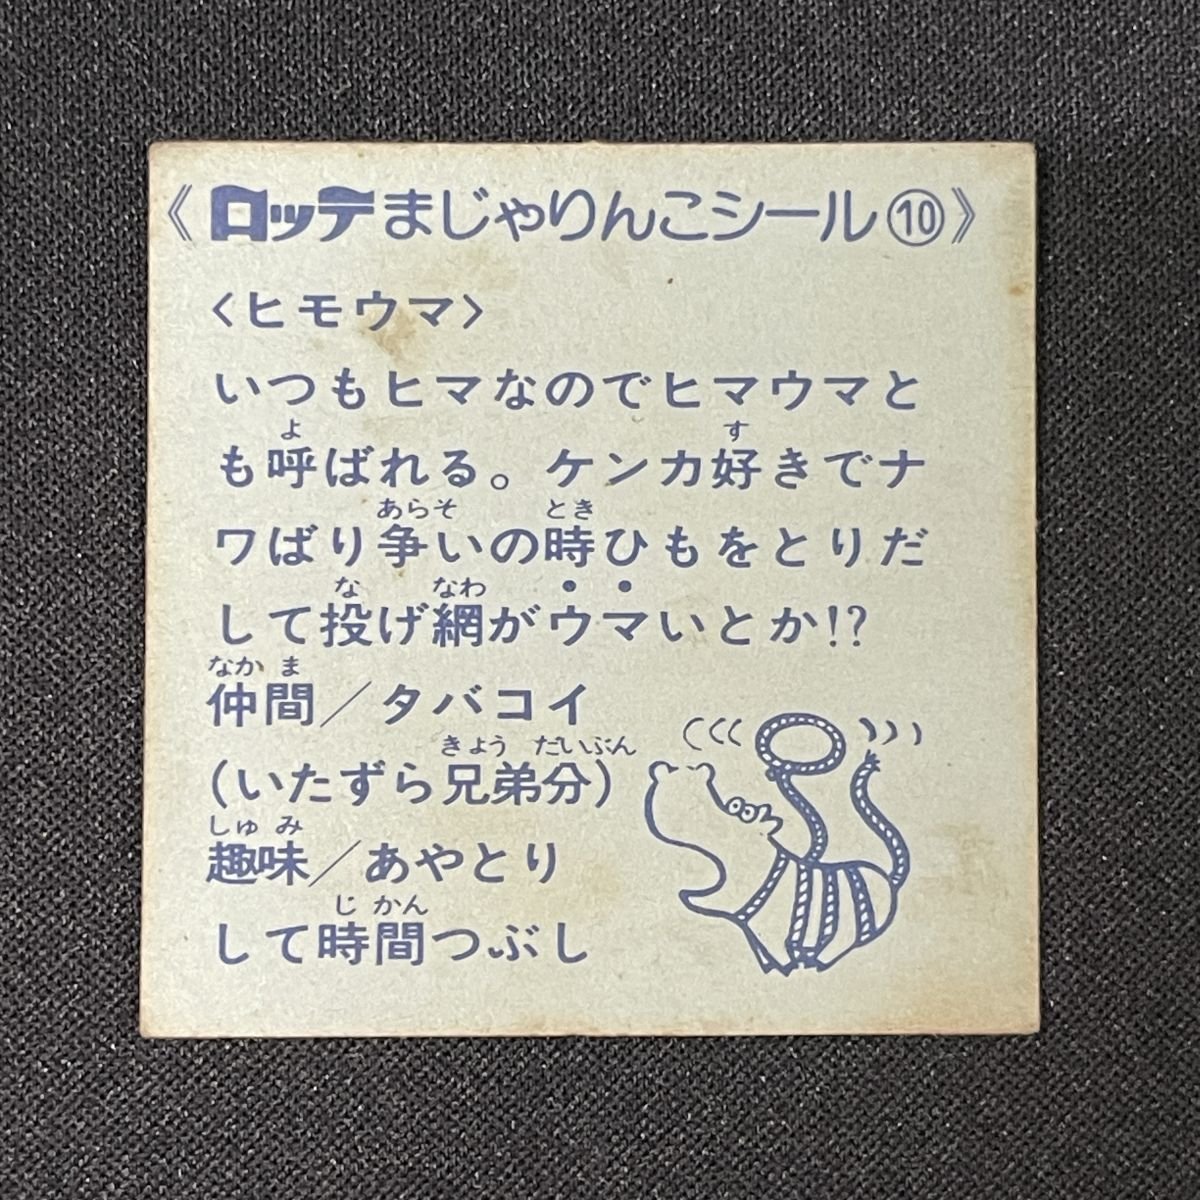 《ロッテまじゃりんこシール⑩》
〈ヒモウマ〉
いつもヒマなのでヒマウマと
よ す
も呼ばれる。ケンカ好きでナ
あらそ とき
ワばり争いの時ひもをとりだ
な なわ
して投げ網がウマいとか!?
なか ま
仲間/タバコイ
きょう だいぶん
(いたずら兄弟分)
しゅ み
趣味/あやとり
じ かん
して時間つぶし